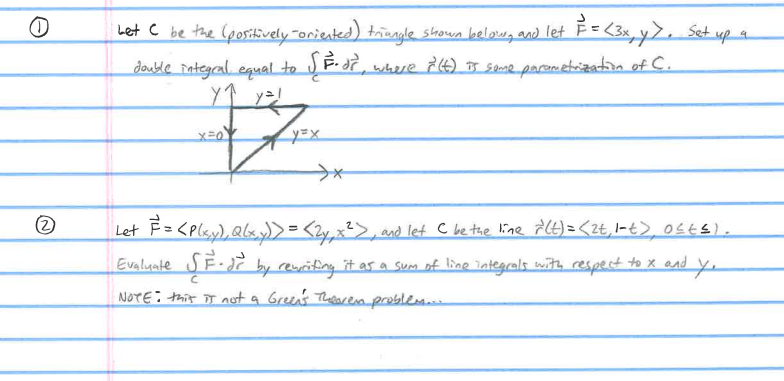 ① Let C be the (positively-oriented) triangle shown below, and let F⃗ = <3x, y>. Set up a
double integral equal to ∫_C F⃗·dr⃗, where r⃗(t) is some parametrization of C.
y y=1
x=0 y=x
x
② Let F⃗ = <P(x,y), Q(x,y)> = <2y, x²>, and let C be the line r⃗(t) = <2t, 1-t>, 0≤t≤1.
Evaluate ∫_C F⃗·dr⃗ by rewriting it as a sum of line integrals with respect to x and y.
NOTE: this is not a Green's Theorem problem...